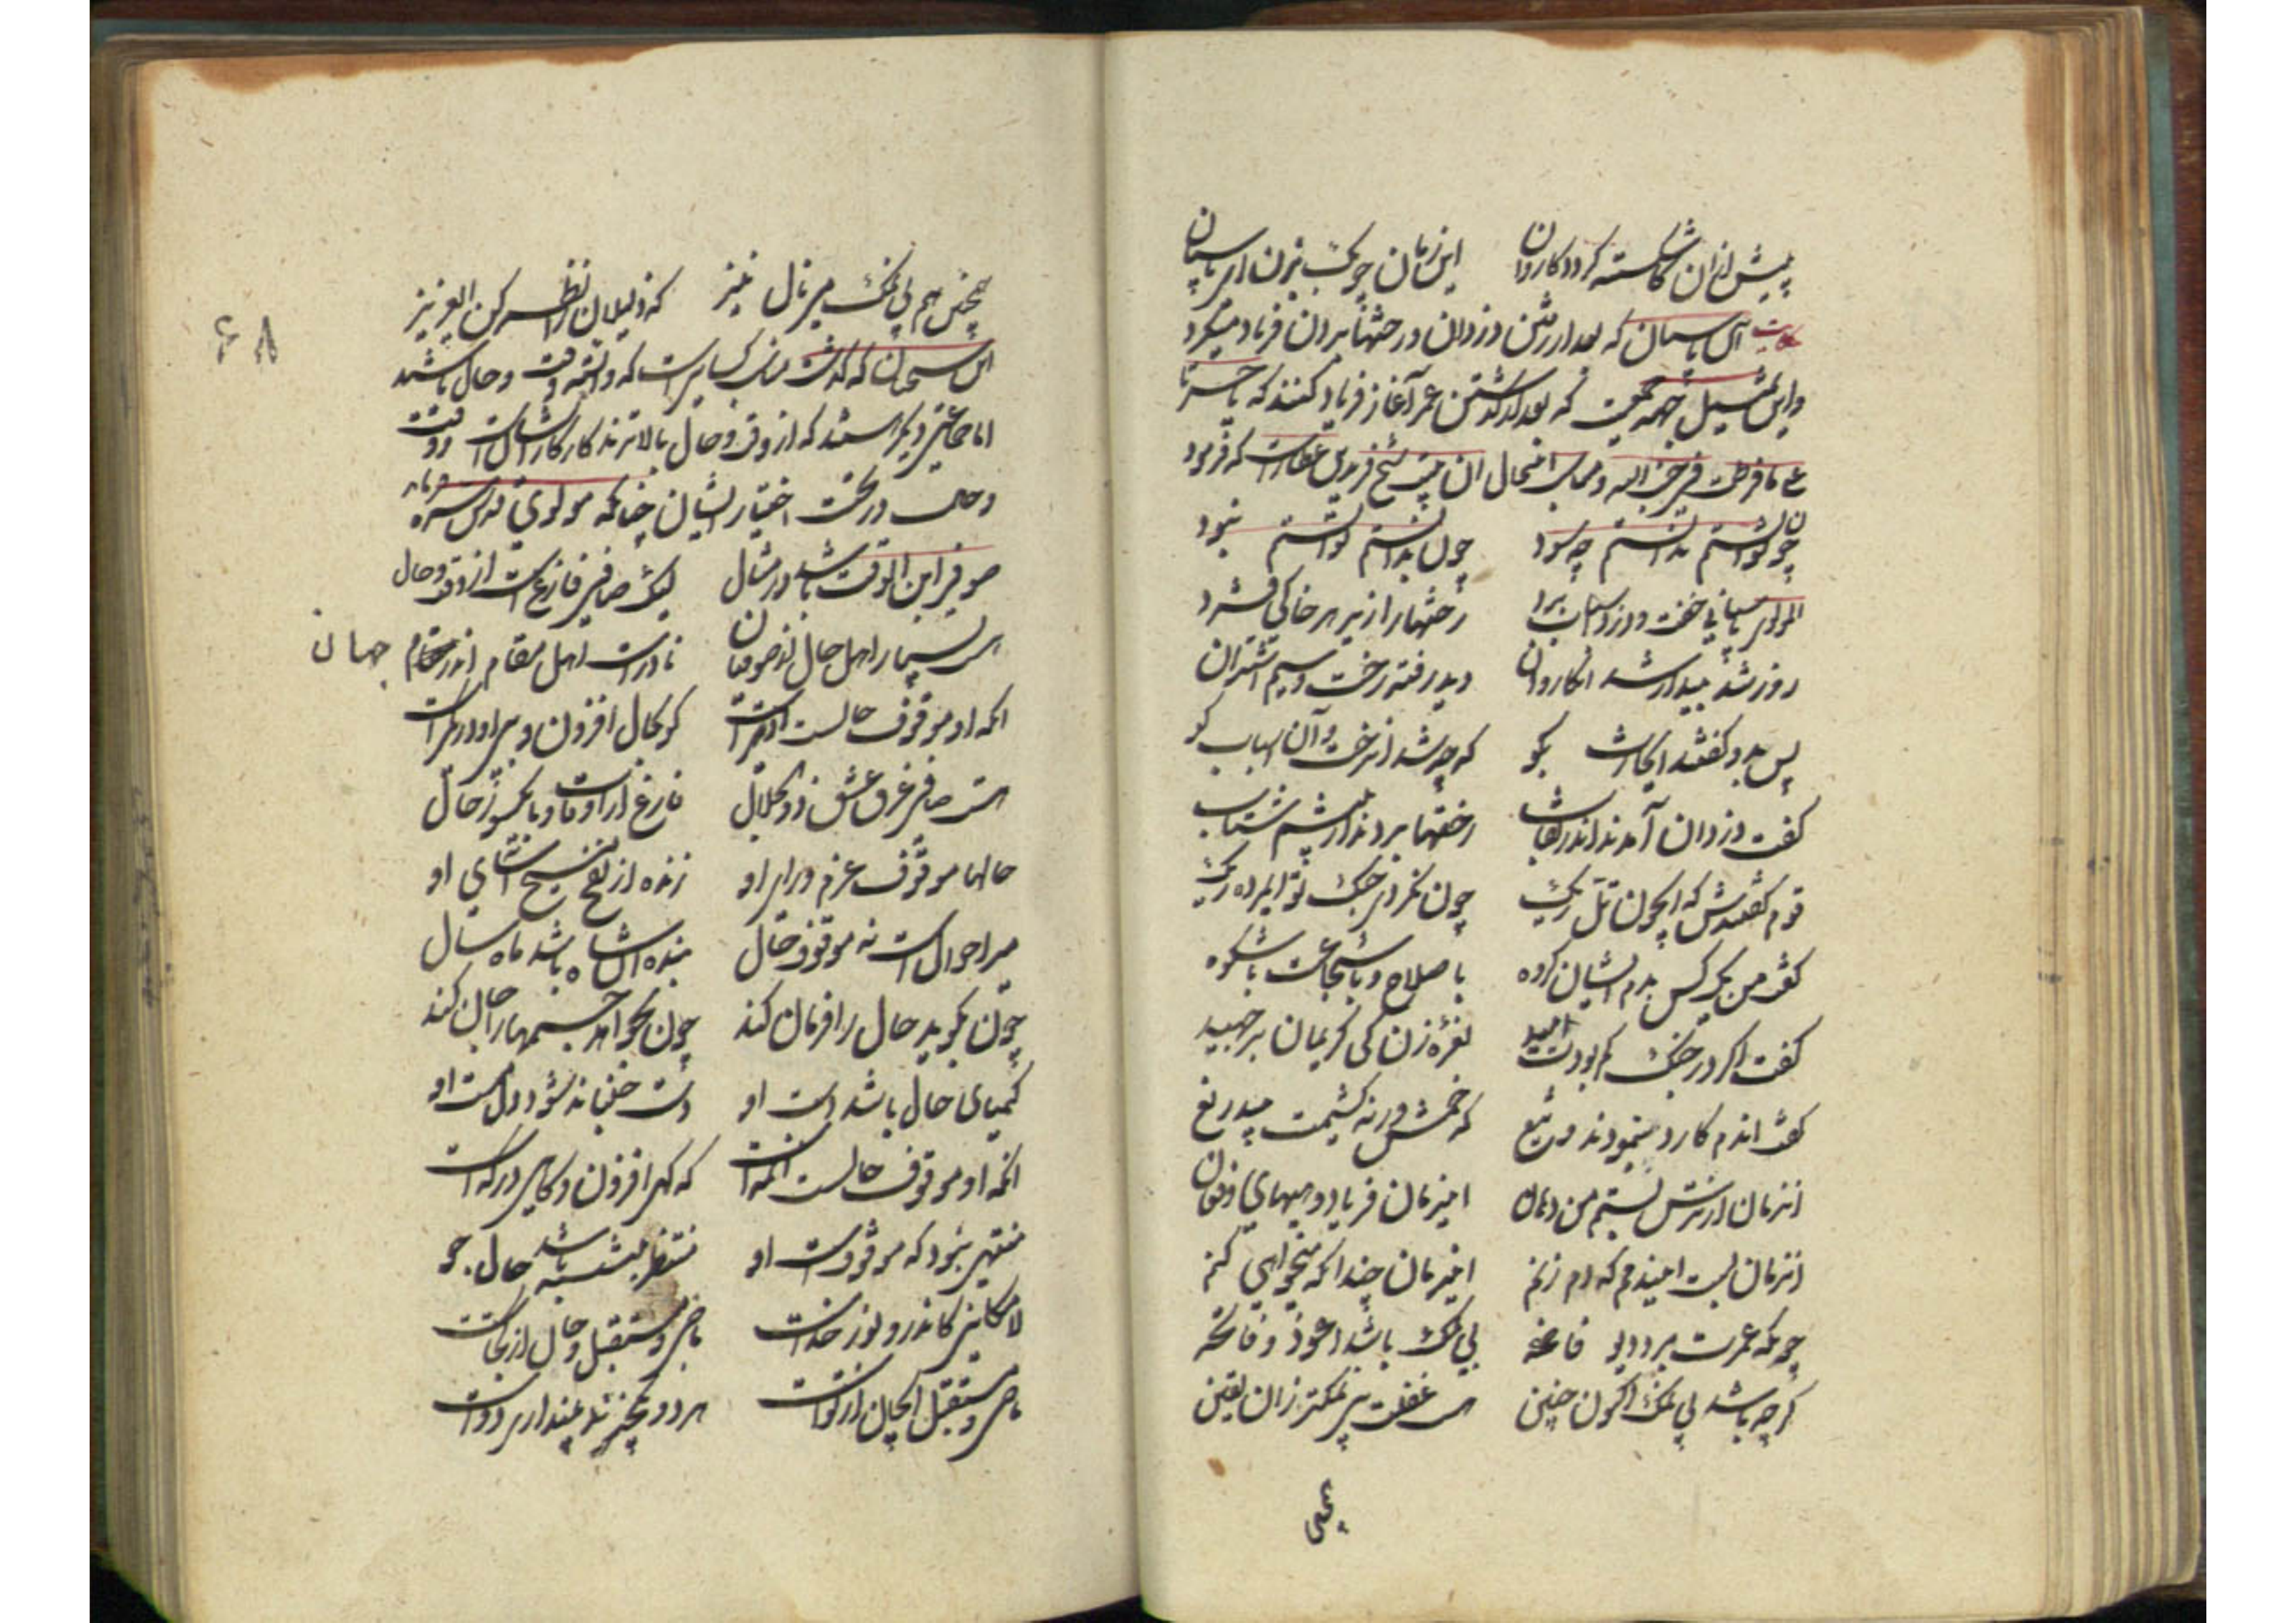 پیش ازان کاشکسته گردد کاروان این زمان چوبک بزن ای پاسبان
حکایت آن پاسبان که بعد از رفتن دزدان و رختها بردن فریاد میکرد
و این تمثیل جهة که بعد از گذشتن عمر آغاز فریاد کنند که یا حسرتا
علی ما فرطت فی جنب الله و مناسب اینحال این بیت شیخ فریدالدین عطارست که فرمود
چون توانستم ندانستم چه سود چون بدانستم توانستم نبود
المولوی پاسبانی خفت و دزد اسباب برد رختها را زیر هر خاکی فشرد
روز شد بیدار شد آن کاروان دید رفته رخت و سیم و اشتران
پس بدو گفتند ای حارس بگو که چه شد این رخت و آن اسباب کو
گفت دزدان آمدند اندر نقاب رختها بردند از پیشم شتاب
قوم گفتندش که ای چون تل ریک چون نکردی جنک تو ای مرده ریک
گفت من یک کس بدم ایشان گروه با سلاح و با شجاعت با شکوه
گفت اگر در جنک کم بودت امید نعره زن کی کریمان برجهید
گفت اندم کارد بنمودند و تیغ که خمش ورنه کشیمت بیدریغ
انزمان از ترس بستم من دهان اینزمان فریاد و هیهای و فغان
انزمان بست این دمم که دم زنم اینزمان چندانکه میخواهی کنم
چونکه عمرت برد دیو فاضحه بی نمک باشد اعوذ و فاتحه
گرچه باشد بی نمک اکنون حنین هست غفلت بی نمکتر زان یقین
همچنین
همچنین هم بی نمک مینال نیز که ذلیلان را نظر کن ای عزیز
۶۸
این سخنان که گذشت مناسب کسانیست که وابسته وقت و حال باشند
اما جماعتی دیگر هستند که از وقت و حال بالاترند کار کار ایشانست و وقت
و حال در تحت اختیار ایشان چنانکه مولوی قدس سره فرماید
صوفی ابن الوقت باشد در مثال لیک صافی فارغست از وقت و حال
هست بسیار اهل حال از صوفیان نادرست اهل مقام اندر جهان
آنکه او موقوف حالست آدمیست کو بحال افزون و گاهی در کمیست
هست صافی غرق عشق ذوالجلال فارغ از اوقات و ز حال
حالها موقوف عزم و رای او زنده از نفخ مسیح آسای او
میر احوالست نه موقوف حال بنده آن شاه باشد ماه و سال
چون بگوید حال را فرمان کند چون بخواهد جسمها را جان کند
کیمیای حال باشد دست او دست جنباند شود مست او
آنکه او موقوف حالست آدمیست که گهی افزون و گاهی در کمیست
منتهی نبود که موقوفست او منتظر بنشسته باشد حال جو
لامکانی کاندرو نور خداست ماضی و مستقبل و حال از کجاست
ماضی و مستقبل ای جان از تو است هر دو یک چیزند پنداری دو است